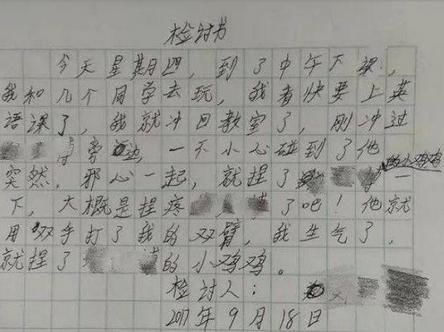 检讨书
今天星期四，到了中午下课，
我和几个同学去玩，我看快要上英
语课了，我就冲回教室了，刚冲过
旁边，一不小心碰到了他
的小鸡鸡
突然，邪心一起，就捏了一
下，大概是捏疼了吧！他就
用双手打了我的双臂，我生气了，
就捏了的小鸡鸡。
检讨人：
2017年9月18日